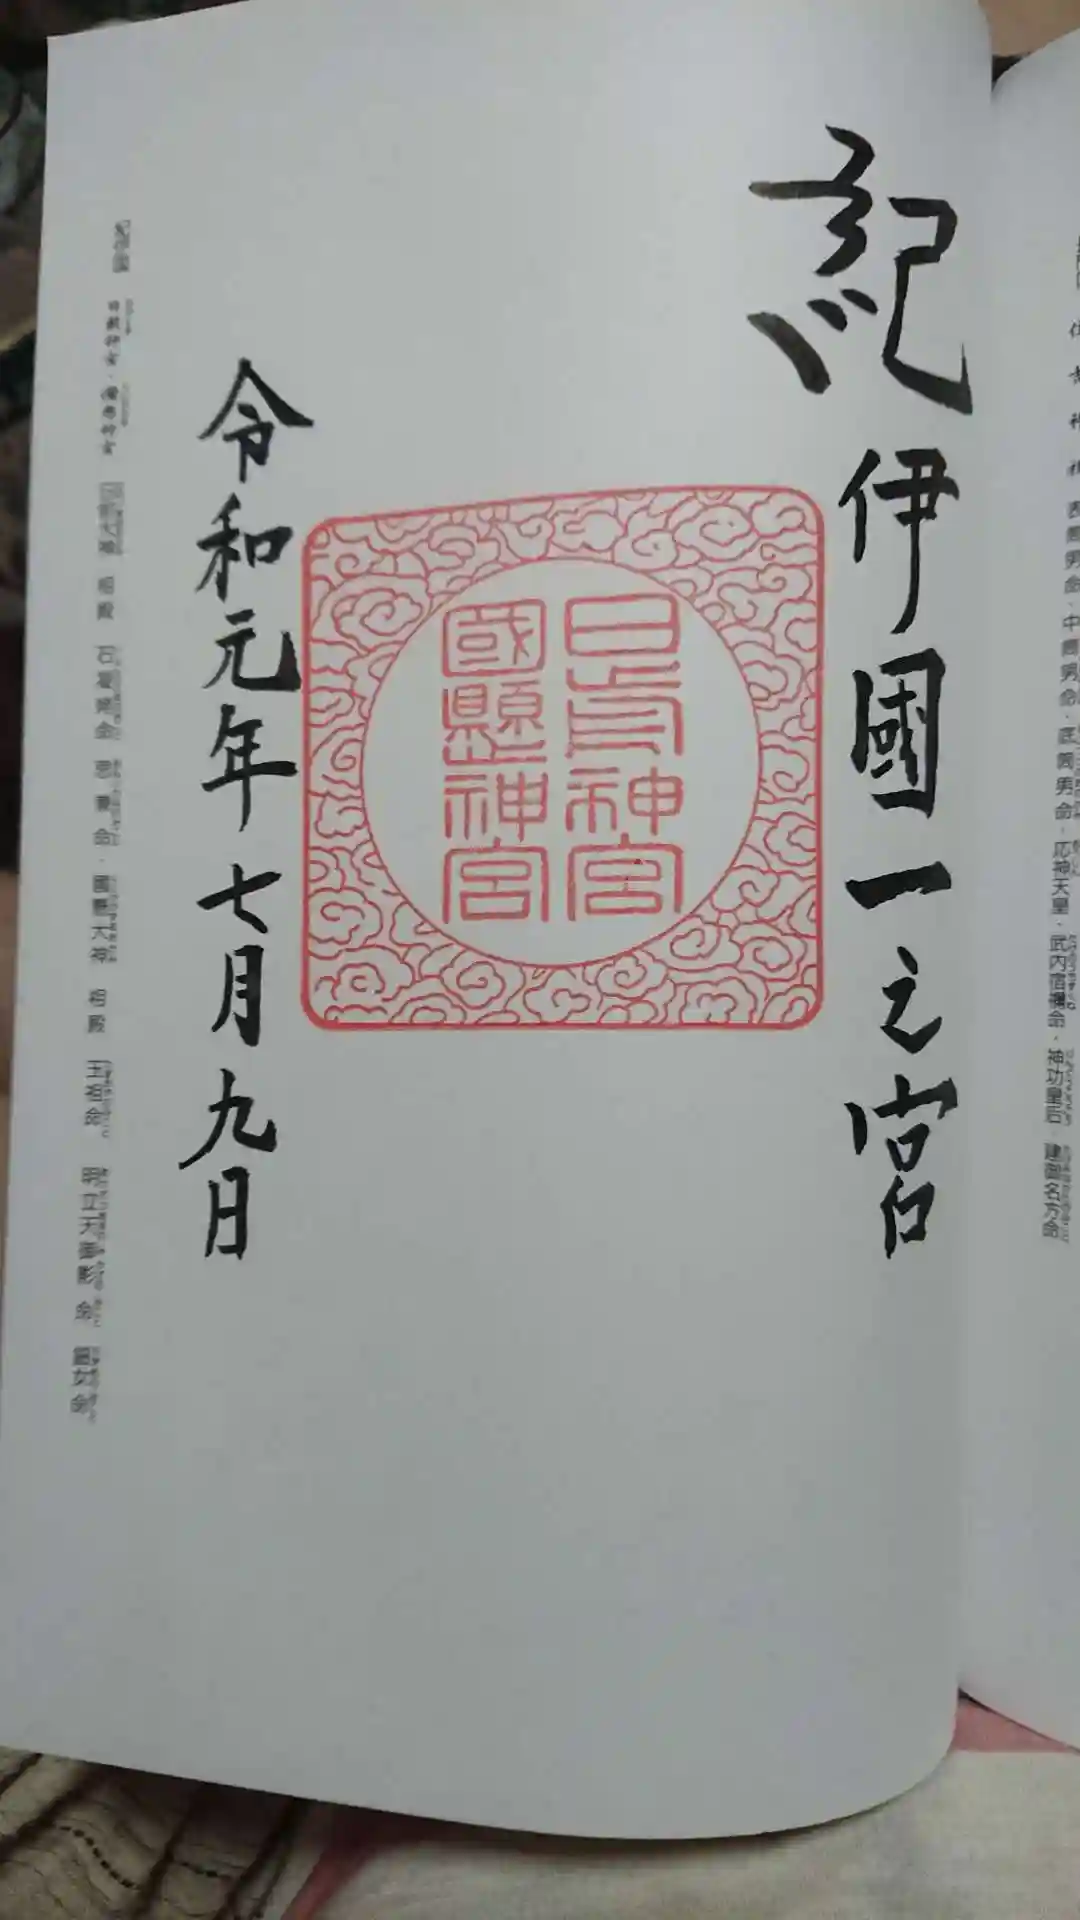 住吉神社 表筒男命・中筒男命・底筒男命・応神天皇・武内宿禰命・神功皇后・建御名方命
紀伊國一之宮
日前神宮
國懸神宮
令和元年七月九日
紀伊国 日前神宮・國懸神宮 日前大神 相殿 石凝姥命 思兼命・國懸大神 相殿 玉祖命 明立天御影命 鈿女命